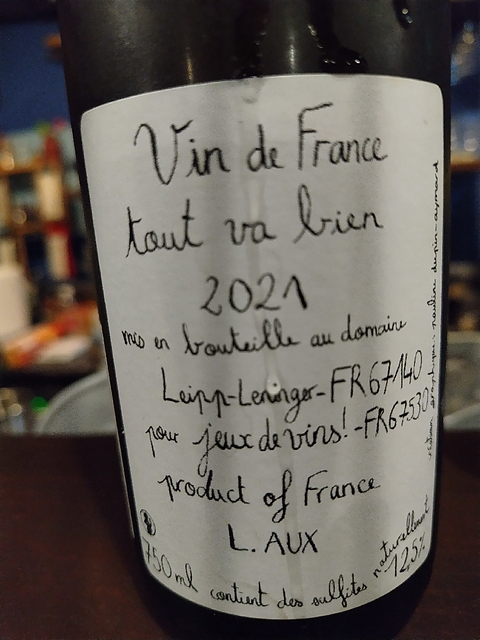 Vin de France
tout va bien
2021
mis en bouteille au domaine
Leipp-Leninger-FR67140
pour jeux de vins!-FR67530
product of France
L. AUX
750 ml contient des sulfites naturellement 12,5%
graphique: pauline dupin-aymard